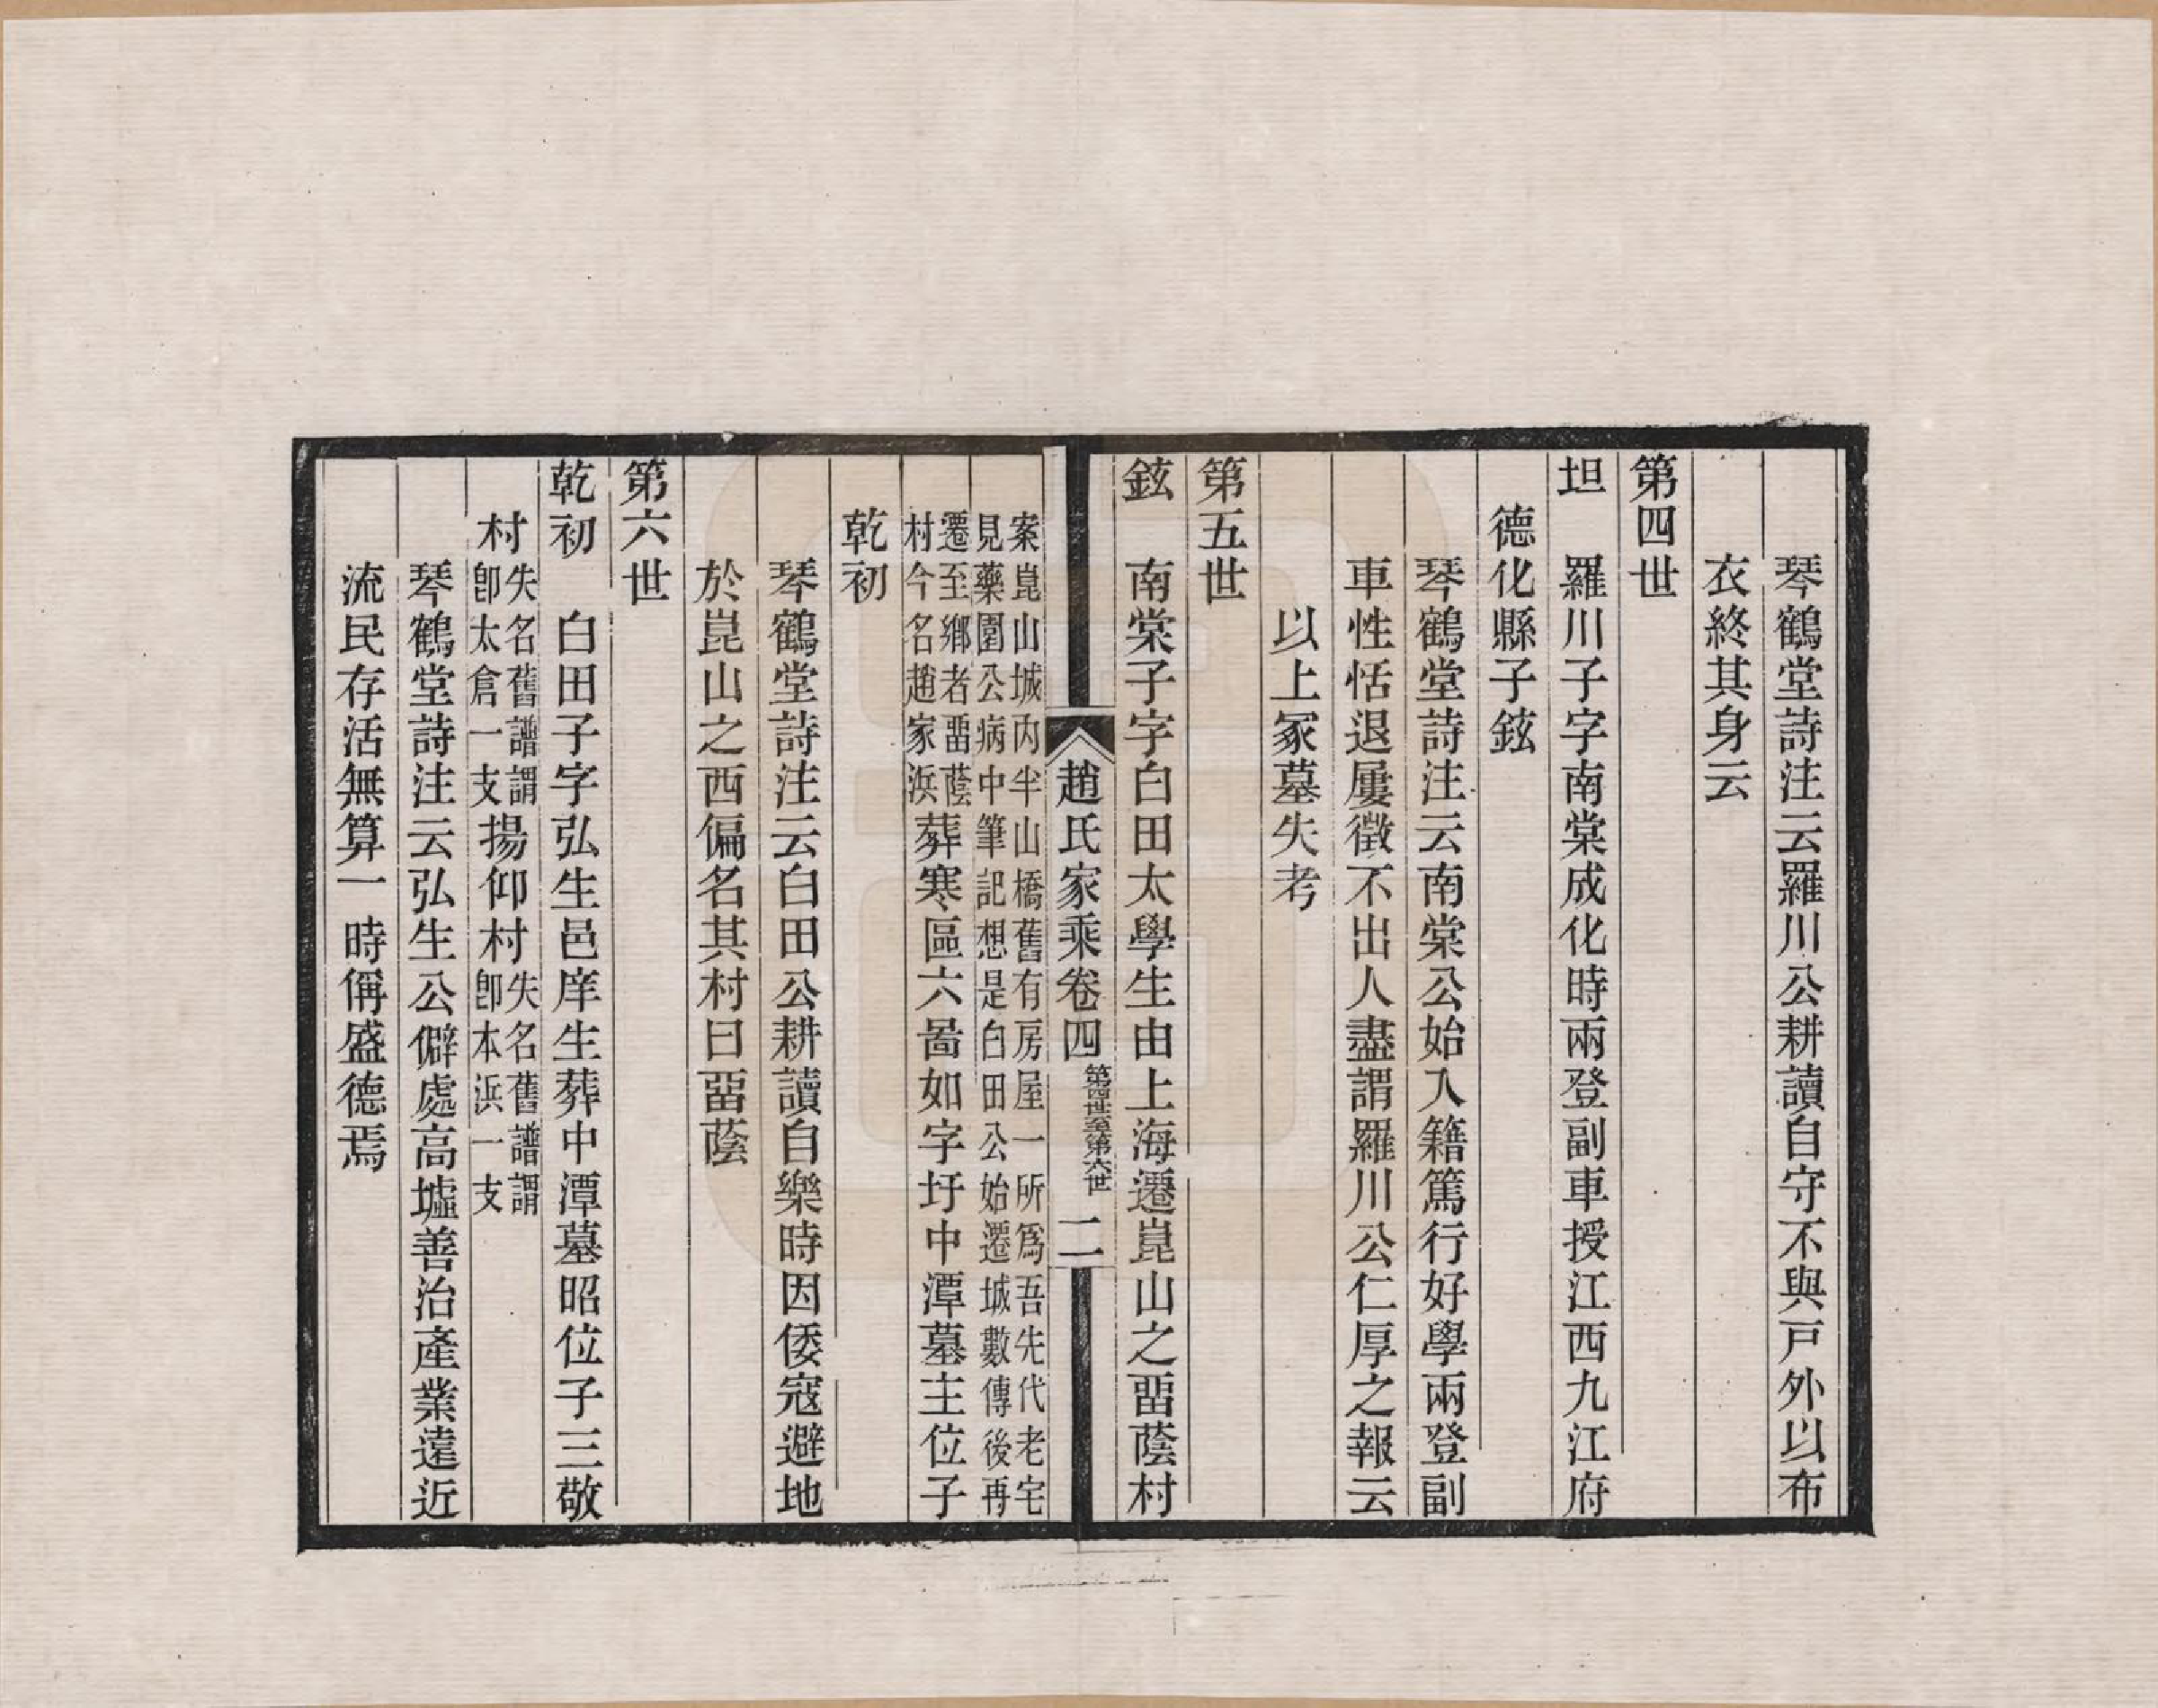 琴鶴堂詩注云羅川公耕讀自守不與戸外以布
衣終其身云
第四世
坦　羅川子字南棠成化時兩登副車授江西九江府
德化縣子鉉
琴鶴堂詩注云南棠公始入籍篤行好學兩登副
車性恬退屢徵不出人盡謂羅川公仁厚之報云
以上冢墓失考
第五世
鉉　南棠子字白田太學生由上海遷崑山之畱蔭村
趙氏家乘卷四　第四世至第六世　二
案崑山城內半山橋舊有房屋一所爲吾先代老宅
見藥園公病中筆記想是白田公始遷城數傳後再
遷至鄉者畱蔭
村今名趙家浜
葬寒區六啚如字圩中潭墓主位子
乾初
琴鶴堂詩注云白田公耕讀自樂時因倭寇避地
於崑山之西偏名其村曰畱蔭
第六世
乾初　白田子字弘生邑庠生葬中潭墓昭位子三敬
村
失名舊譜謂
卽太倉一支
揚仰村
失名舊譜謂
卽本浜一支
琴鶴堂詩注云弘生公僻處高墟善治產業遠近
流民存活無算一時偁盛德焉